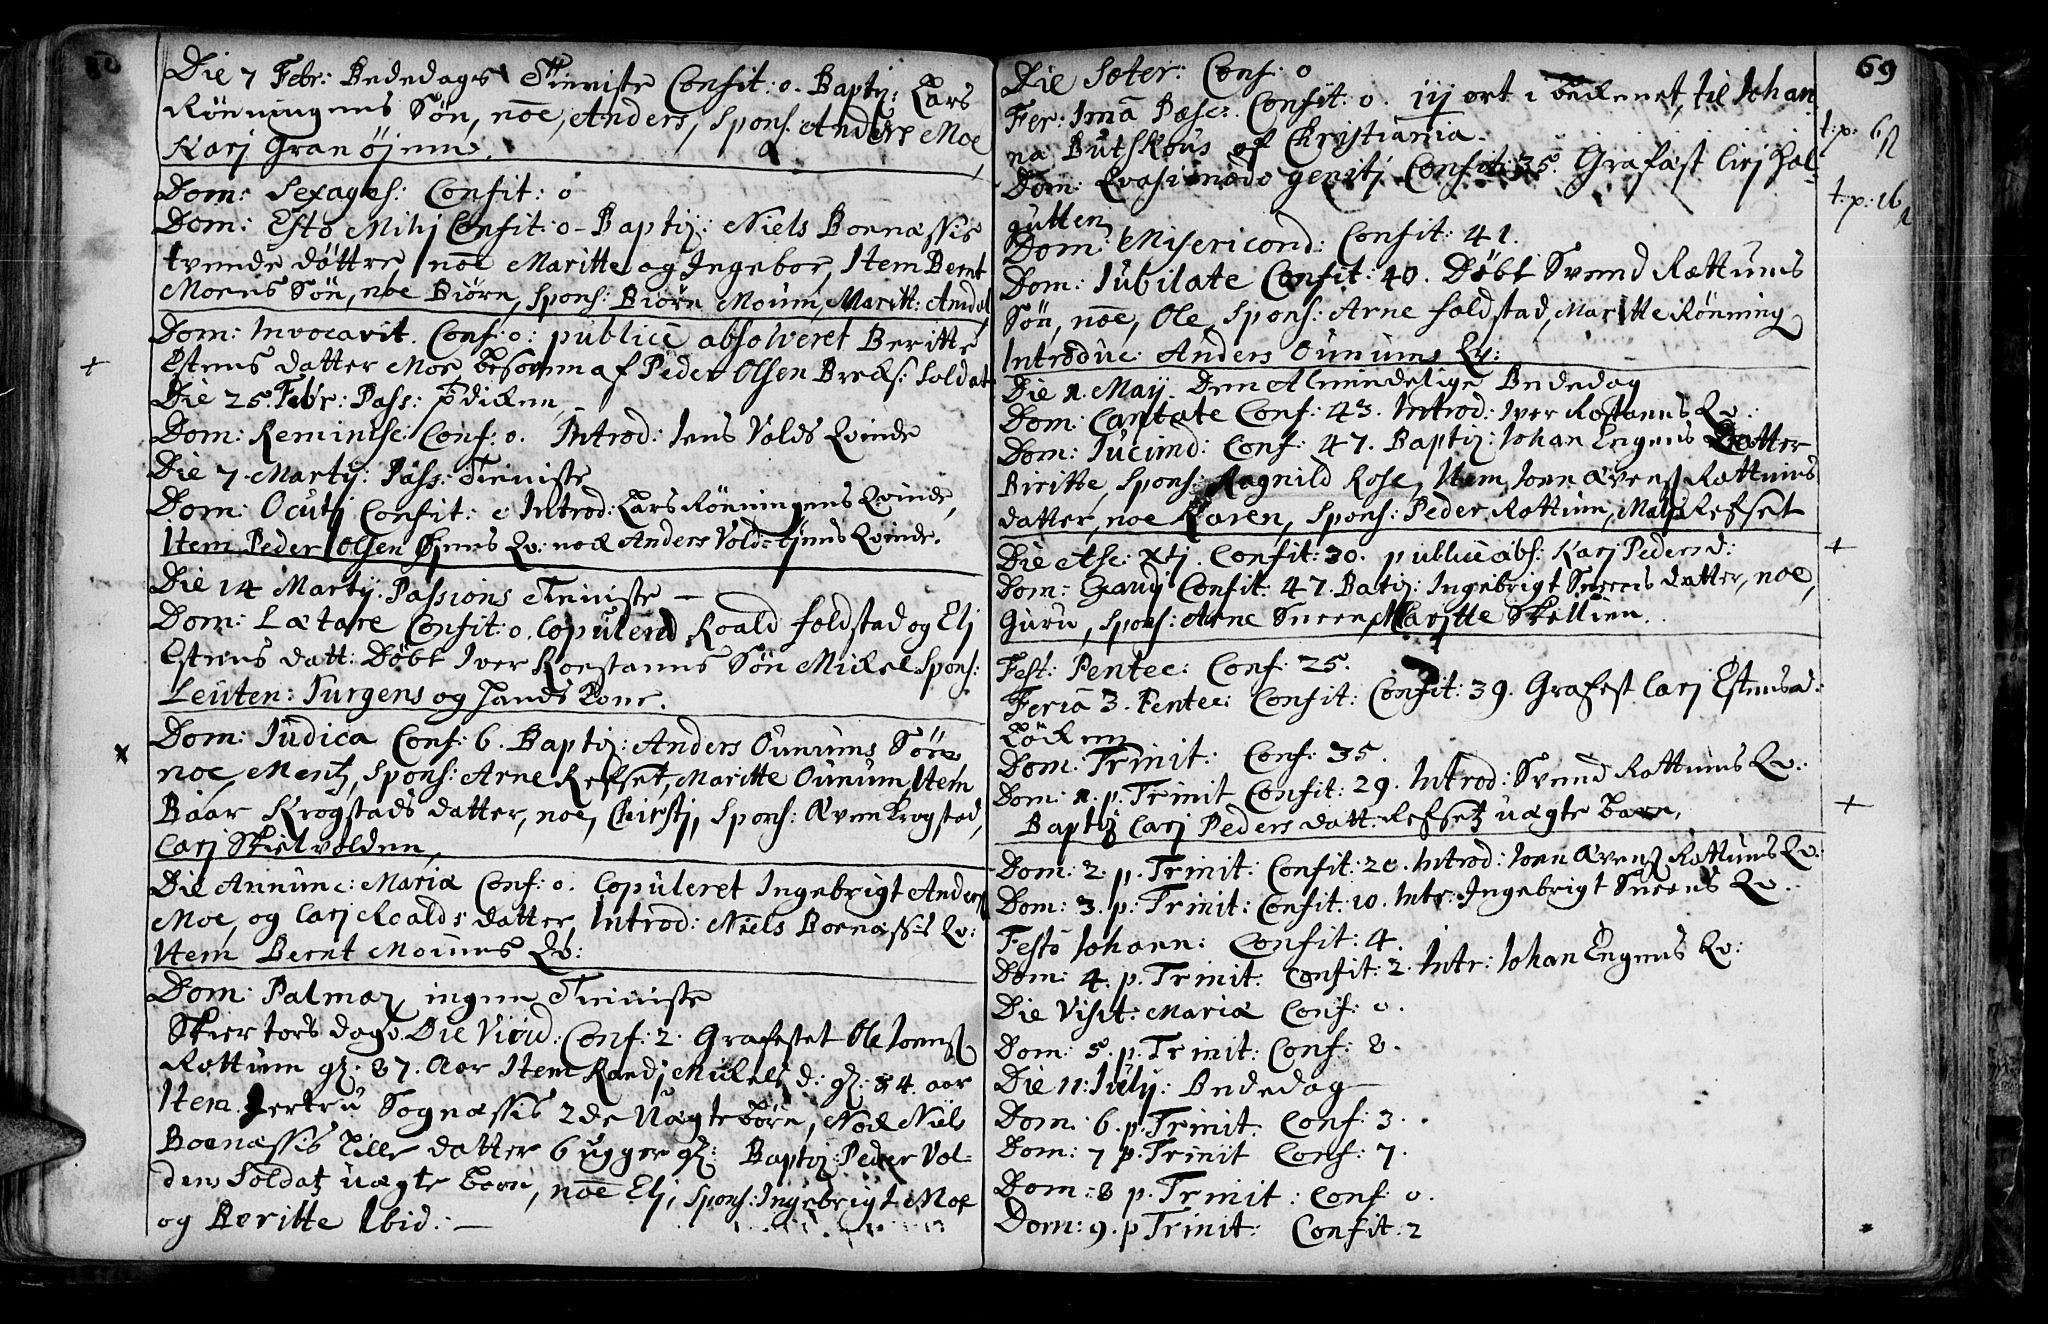 Die 7 Febr: Bededags Tieniste Confit: 0. Baptiz: Lars
Rönningens Sön, noe, Anders, Spons. Anders Moe
Karj Granöjenn.
Dom: Sexages: Confit: 0
Dom: Esto Mihj Confit: 0 - Baptiz: Niels Bornæssis
tvende döttre, noe Maritte og Ingebor, Item Bernt
Moens Sön, noe Biörn, Spons: Biörn Moum, Maritt: Amdal
Dom: Invocavit. Conf: 0: publicè absolveret Beritte
Estens datter Moe besofven af Peder Olsen Brecks: Soldat
Die 25. Febr: Pass: Prdiken
Dom: Reminisc: Conf: 0. Introd: Jens Volds Qvinde
Die 7. Martij: Pass: Tieniste
Dom: Oculj Confit: 0 Introd: Lars Rönningens Qvinde,
Item Peder Olsen Öjens Qv: nock Anders Vold-tjens Qvinde.
Die 14 Martij. Passions Tieniste -
Dom: Lætare Confit: 0. Copulerid Roald foldstad og Elj
Estens datt: Döbt Iver Roestanns Sön Mickel Spons:
Leüten: Jurgens og hands Kone.
Dom: Judica Conf: 6. Baptiz: Anders Ounums Sön
noe, Mentz, Spons: Arne Refset, Maritte Ounum, Item
Baar Krogstads datter, noe, Chirstj, Spons: Even Krogstad,
Carj Skielvolden,
Die Annunc: Mariæ Conf: 0. Copuleret Ingebrigt Anders
Moe, og Carj Roalds datter, Introd: Niels Bornæssis Qv:
Item Bernt Moüms Qv:
Dom: Palmar, ingen Tieniste
Skier tors dag. Die Virid: Conf: 2. Grafestet Ole Joens
Rottum gl. 87. Aar Item Randj Mickels d: gl: 84. aar
Item Jertru Sognæssis 2de Uægte börn, Nock Niels
Bornæssis lille datter 6 uger gl: Baptiz: Peder Vol-
dens Soldat uægte barn, noe Elj, Spons: Ingebrigt Moe
og Beritte Ibid: -
69
Die Sater: Conf: 0
Fer: Ima Pasc: Confit: 0. iij ort i beckenet, til Johan
na Butskous af Christiania.
t: p: 6
Dom: Qvasimodo genitj Confit: 35. Grafæst Cirj Hal-
t: p: 16
gutten
Dom: Misericord: Confit: 41.
Dom: Jubilate Confit: 40. Döbt Svend Rottums
Sön, noe, Ole, Spons: Arne foldstad, Maritte Rönning
Introduc: Anders Ounums Qv:
Die 1. Maij. Den Almindelige Bededag
Dom: Cantate Conf: 43. Introd: Iver Rostanns Qv:
Dom: Jucund: Conf: 47. Baptiz: Johan Engens Datter
Biritte, Spons: Ragnild Rose, Item Joen Evens Rottums
datter, noe Karen, Spons: Peder Rottum, Refset
Die Asc: Xtj. Confit: 30. publicè abs: Karj Peders d:
Dom: Exaudj Confit: 47. Batiz: Ingebrigt Sneens datter, noe,
Guru, Spons: Arne Sneen, Marjtte Skellien.
Fest: Pentec: Conf: 25.
Feria 3. Pentec: Confit: Confit: 39. Grafest Carj Estensd:
Löcken
Dom: Trinit: Conf: 35.
Dom: 1. p. Trinit Confit: 29. Introd: Svend Rottums Qv:
Baptiz Carj Peders datt: Refsetz uægte barn.
Dom: 2. p. Trinit: Confit: 20. Introd: Joen Evens Rottums Qv:
Dom: 3. p: Trinit: Confit: 10. Intr: Ingebrigt Sneens Qv.
Festo Johann: Confit: 4.
Dom: 4. p. Trinit: Confit: 2. Intr: Johan Engens Qv:
Die Visit: Mariæ Conf: 0.
Dom: 5. p. Trinit: Conf: 8.
Die 11: Julij: Bededag
Dom: 6. p. Trinit: Conf: 3.
Dom: 7 p. Trinit Conf: 7.
Dom: 8 p. Trinit: Conf: 0.
Dom: 9. p Trinit: Confit: 2